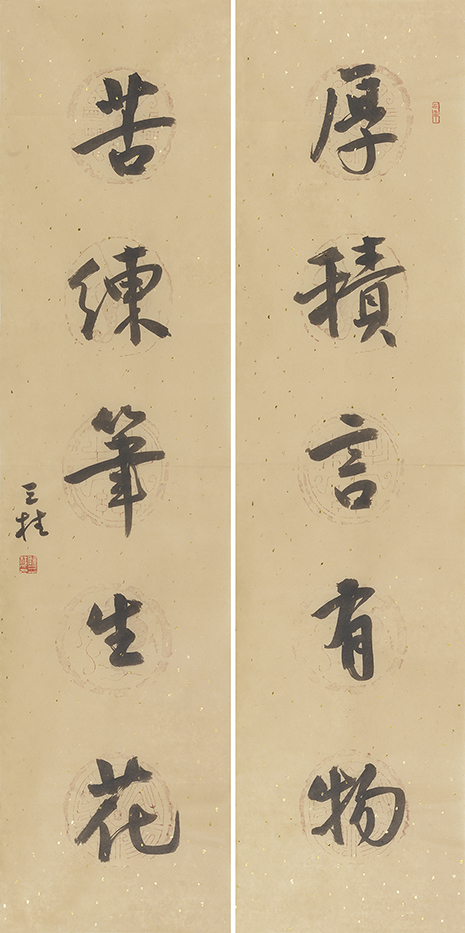 厚積言有物
苦練筆生花
三柱